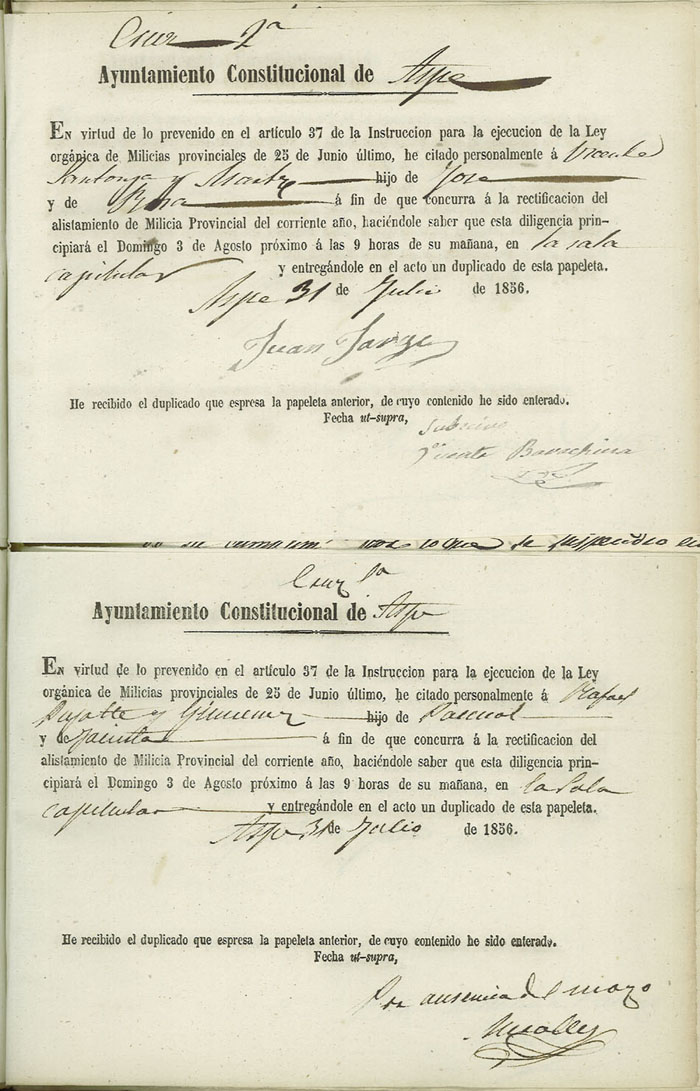 Cruz 2ª
Ayuntamiento Constitucional de Aspe
EN virtud de lo prevenido en el artículo 37 de la Instruccion para la ejecucion de la Ley
orgánica de Milicias provinciales de 25 de Junio último, he citado personalmente á Vicente
y hijo de Jose
y de á fin de que concurra á la rectificacion del
alistamiento de Milicia Provincial del corriente año, haciéndole saber que esta diligencia prin-
cipiará el Domingo 3 de Agosto próximo á las 9 horas de su mañana, en la sala
capitular y entregándole en el acto un duplicado de esta papeleta.
Aspe 31 de Julio de 1856.
Juan
He recibido el duplicado que espresa la papeleta anterior, de cuyo contenido he sido enterado.
Fecha ut-supra,
Vicente
Cruz
Ayuntamiento Constitucional de Aspe
EN virtud de lo prevenido en el artículo 37 de la Instruccion para la ejecucion de la Ley
orgánica de Milicias provinciales de 25 de Junio último, he citado personalmente á Rafael
y Gimenez hijo de Pascual
y de Jacinta á fin de que concurra á la rectificacion del
alistamiento de Milicia Provincial del corriente año, haciéndole saber que esta diligencia prin-
cipiará el Domingo 3 de Agosto próximo á las 9 horas de su mañana, en la Sala
capitular y entregándole en el acto un duplicado de esta papeleta.
Aspe 31 de Julio de 1856.
He recibido el duplicado que espresa la papeleta anterior, de cuyo contenido he sido enterado.
Fecha ut-supra,
Por ausencia del mozo